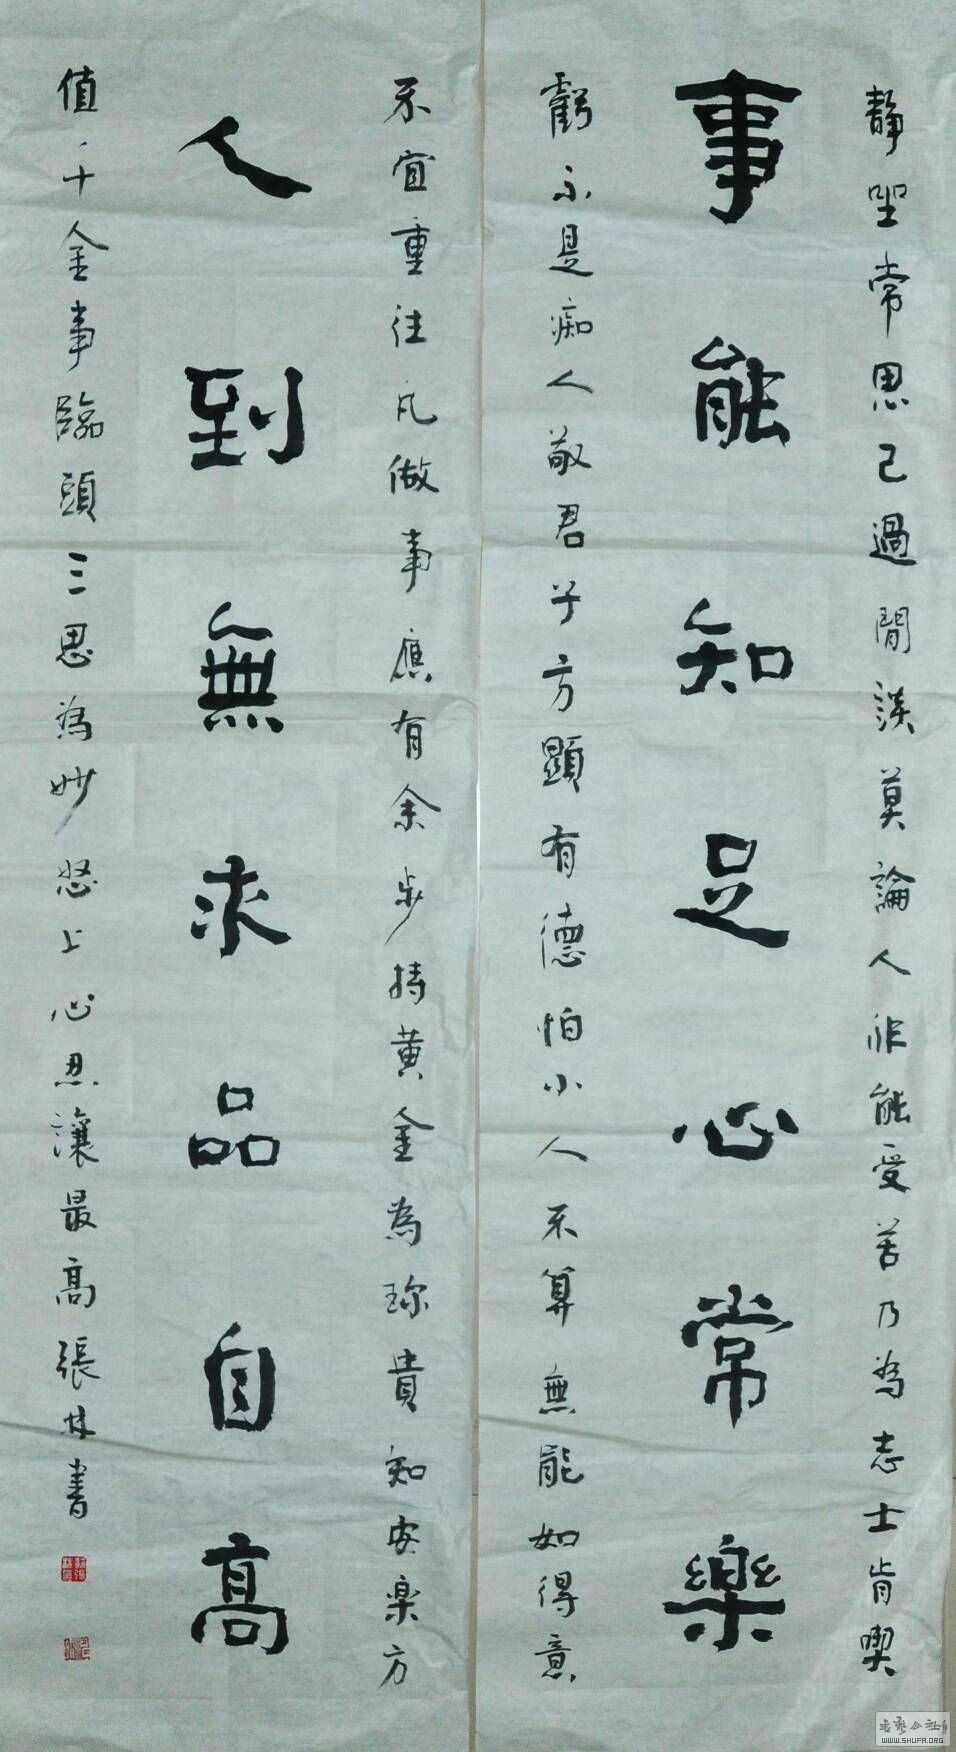 靜坐常思己過閒談莫論人非能受苦乃為志士肯喫
事能知足心常樂
虧不是痴人敬君子方顯有德怕小人不算無能如得意
不宜重往凡做事應有余步持黃金為珍貴知安樂方
人到無求品自高
值千金事臨頭三思為妙怒上心忍讓最高張林書
WWW.SHUFA.ORG